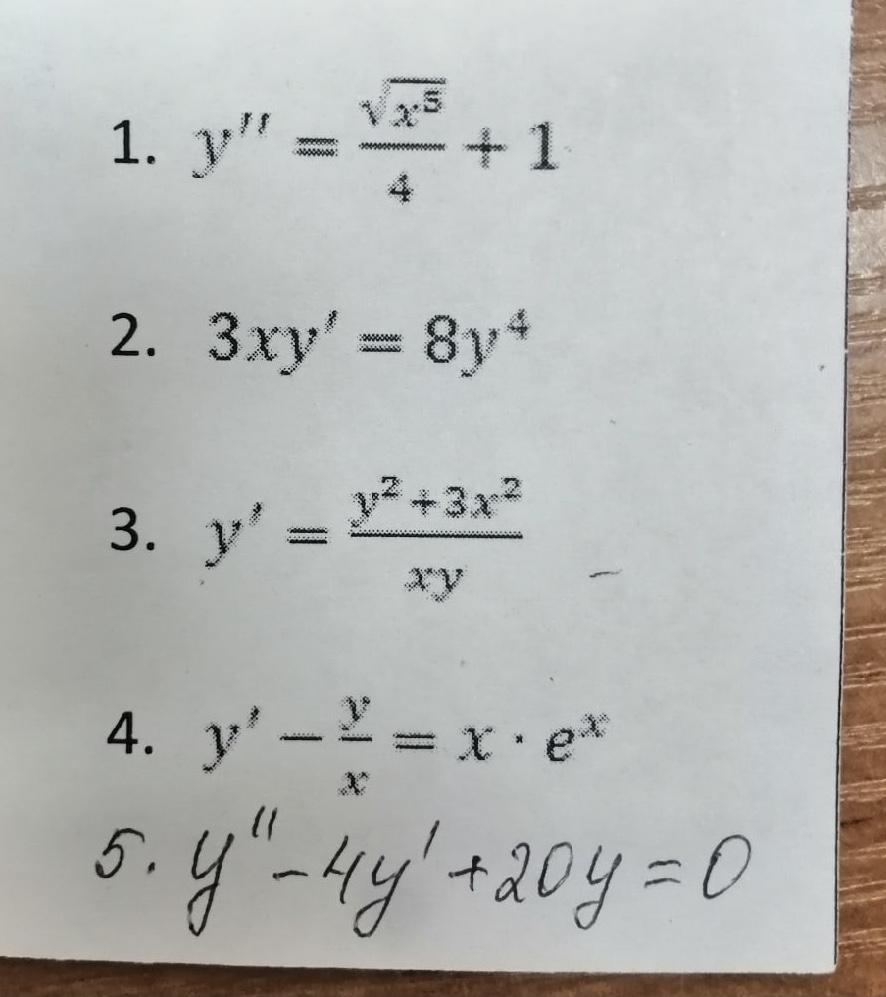 1. y'' = √(x⁵)/4 + 1
2. 3xy' = 8y⁴
3. y' = (y² + 3x²)/(xy)
4. y' − y/x = x · eˣ
5. y'' − 4y' + 20y = 0